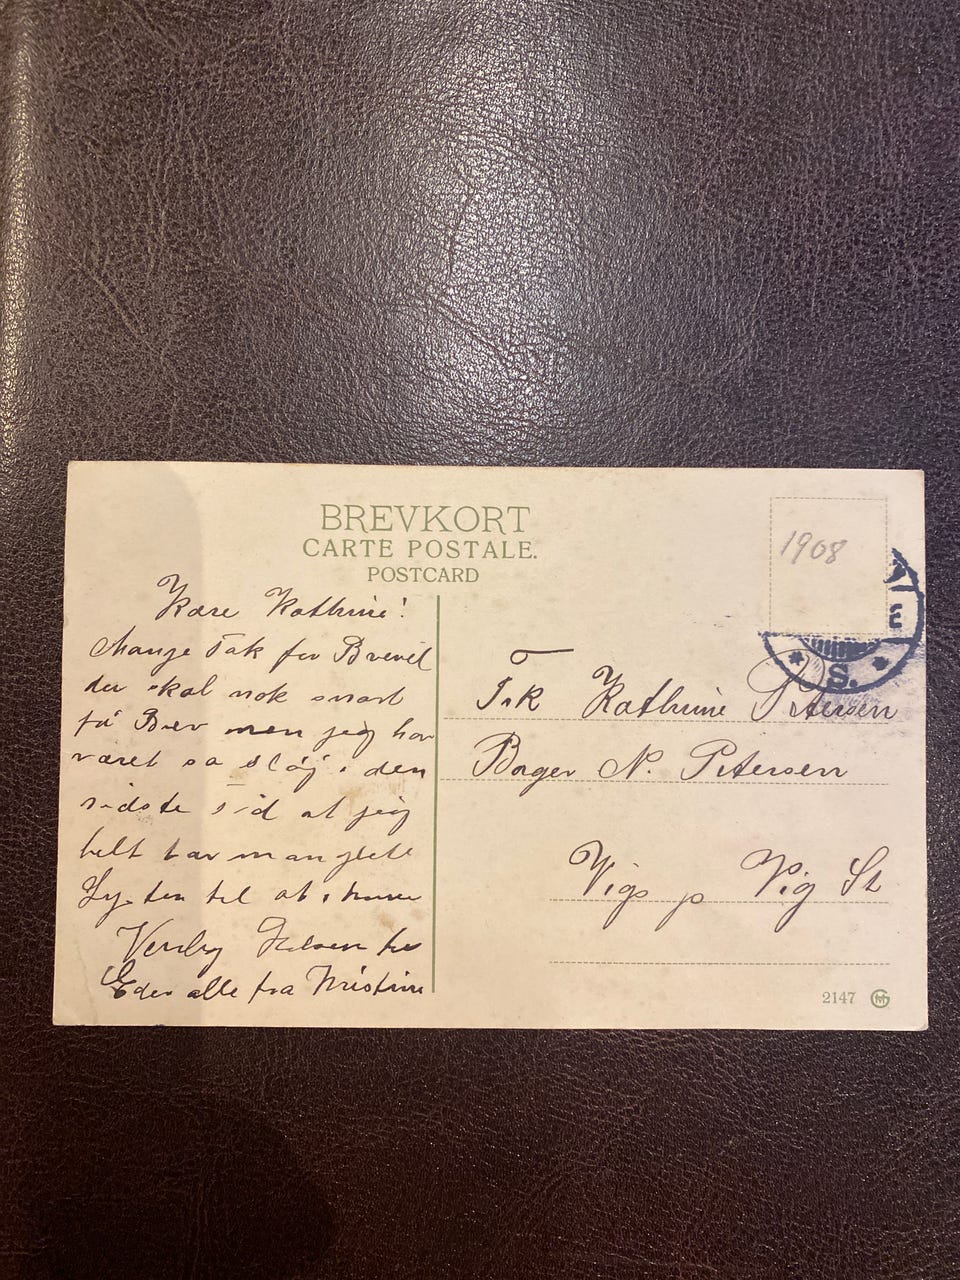 BREVKORT
CARTE POSTALE.
POSTCARD
1908
E
S.
Kære Kathrine!
Mange Tak for Brevet
du skal nok snart
få Brev men jeg har
været så sløj i den
sidste Tid at jeg
helt har manglet
Lysten til at skrive
Venlig Hilsen til
Eder alle fra Kristine
Frk Kathrine Petersen
Bager N. Petersen
Vig p Vig St
2147